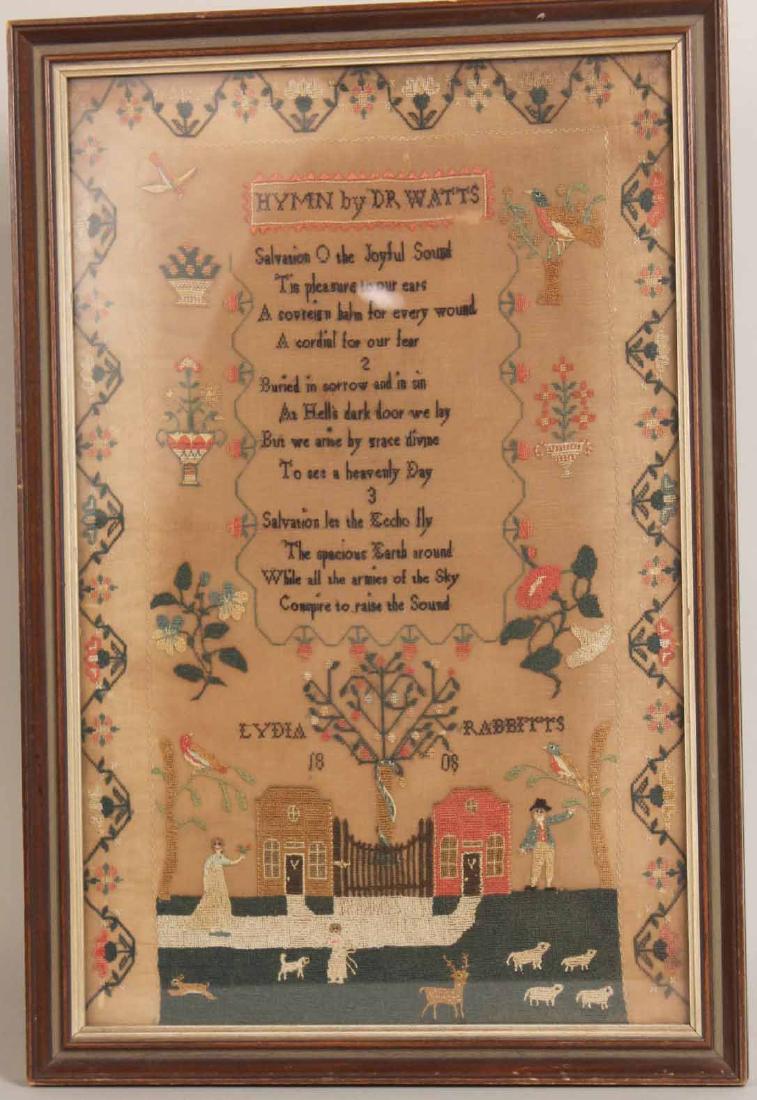 HYMN by DR WATTS
Salvation O the Joyful Sound
Tis pleasure to our ears
A sovreign balm for every wound
A cordial for our fear
2
Buried in sorrow and in sin
At Hell's dark door we lay
But we arise by grace divine
To see a heavenly Day
3
Salvation let the Eccho fly
The spacious Earth around
While all the armies of the Sky
Conspire to raise the Sound
LYDIA RABBITTS
18 08